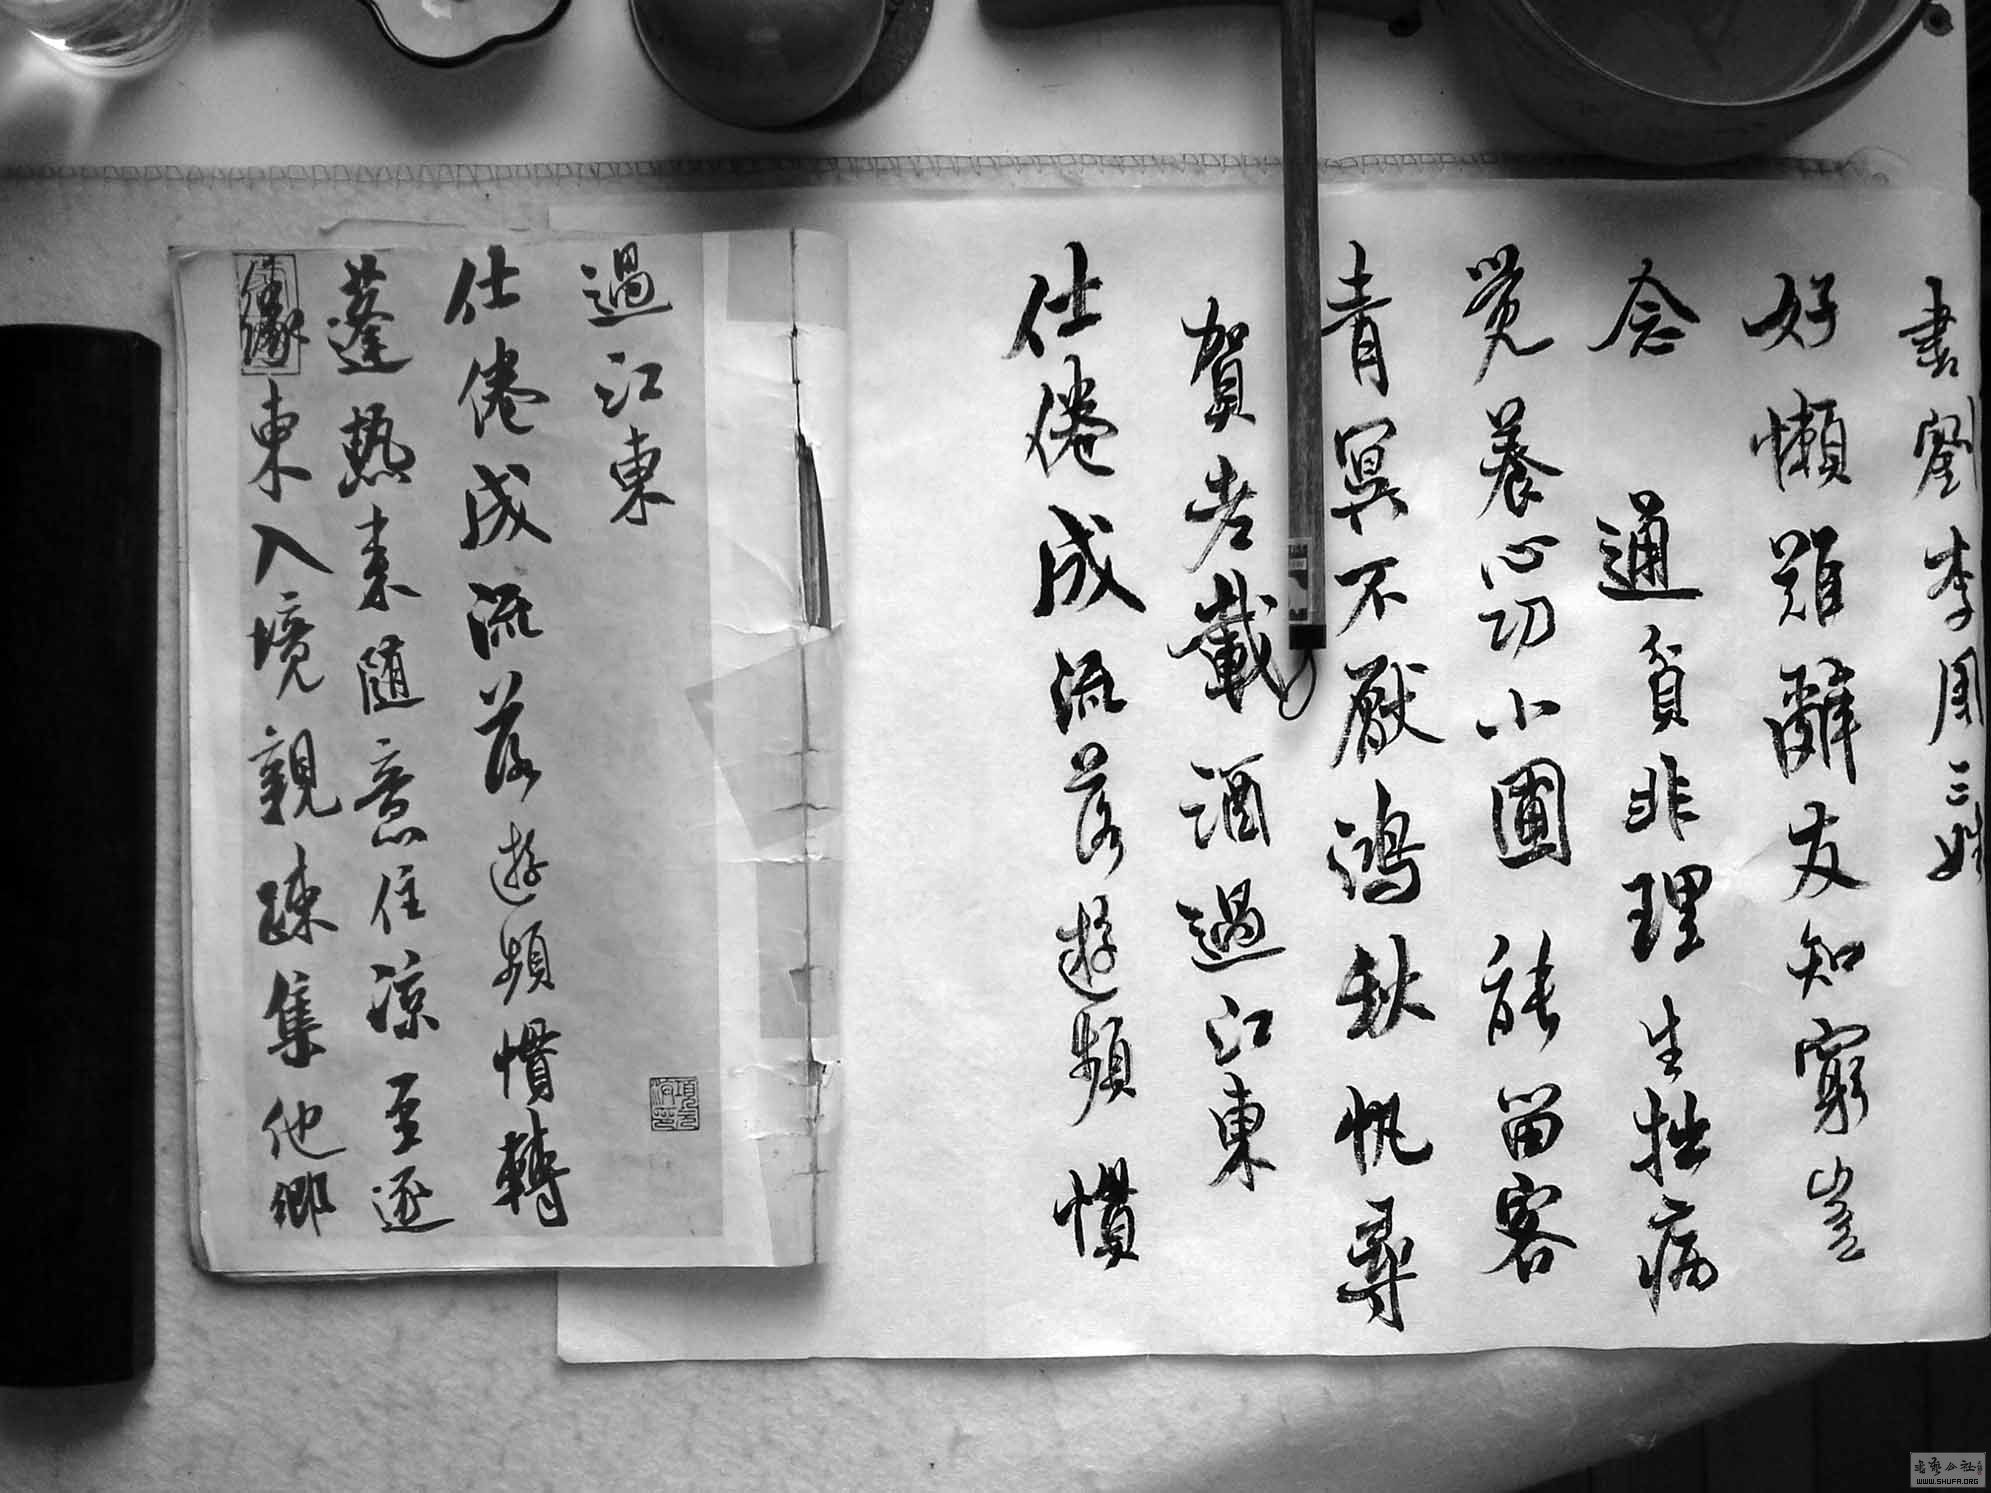 書劉李周三姓
好懶難辭友知窮豈
念通貧非理生拙病
覺養心功小圃能留客
青冥不厭鴻秋帆尋
賀老載酒過江東
仕倦成流落遊頻慣
過江東
仕倦成流落遊頻慣轉
蓬熱來隨意住涼至逐
緣東入境親疎集他鄉
書藝公社
WWW.SHUFA.ORG